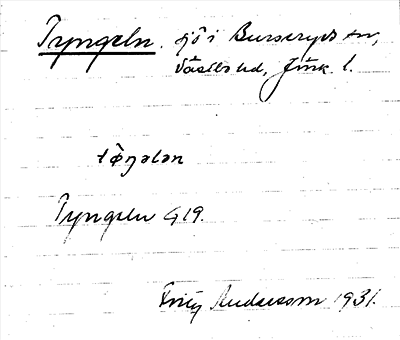 Tyngeln. sjö i Burseryds sn,
Västbo hd, Jönk. l.
tö̀ŋələn
Tyngeln G19.
Fritz Andersson 1931.